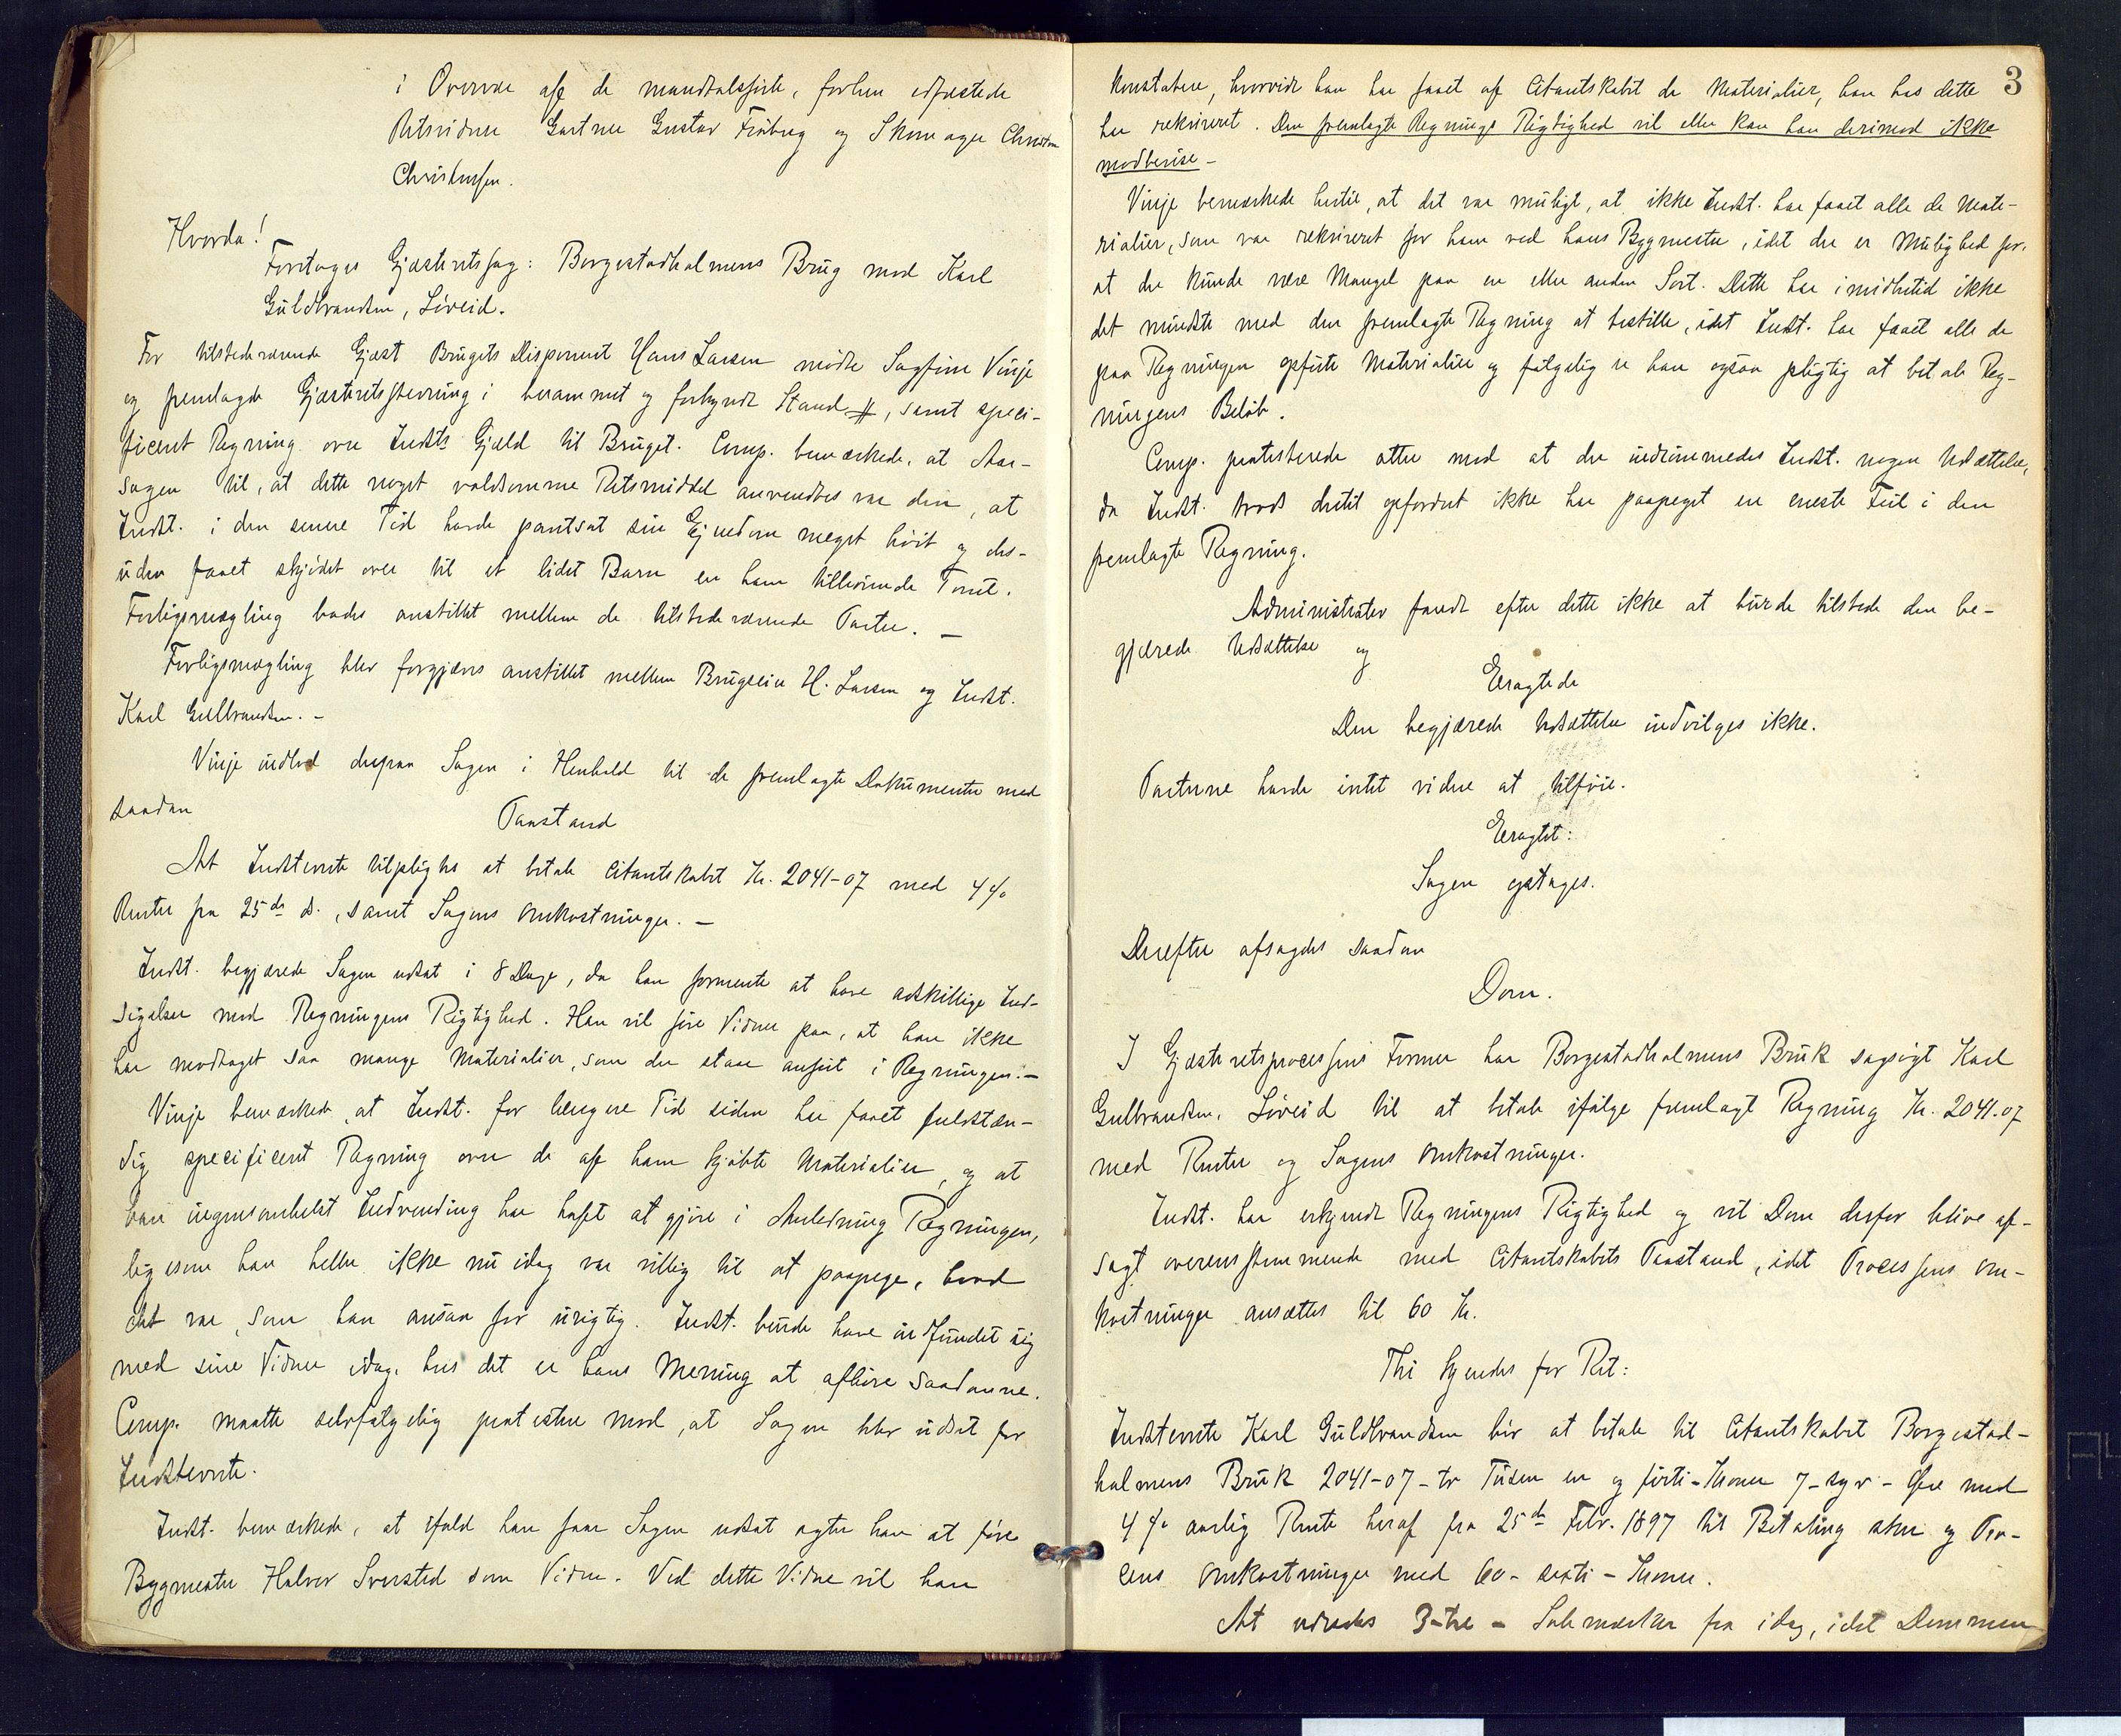 i Overvær af de mandtalsførte, forhen edfæstede
Retsvidner Gartner Gustav Friberg og Skomager Christen
Christensen.
Hvorda!
Foretoges Gjæsteretssag: Borgestadholmens Brug mod Karl
Guldbrandsen, Løveid.
For tilstedeværende Gjæst Brugets Disponent Hans Larsen mødte Sagfører Vinje
og fremlagde Gjæsteretsstevning i berammet og forkyndt Stand #, samt speci-
ficeret Regning over Indsts Gjæld til Bruget. Comp. bemærkede, at Aar-
sagen til, at dette noget voldsomme Retsmiddel anvendtes var den, at
Indst. i den senere Tid havde pantsat sin Ejendom meget høit og des-
uden faaet skjødet over til et lidet Barn en ham tilhørende Tomt.
Forligsmægling bades anstillet mellem de tilstedeværende Parter. –
Forligsmægling blev forgjæves anstillet mellem Brugseier H. Larsen og Indst.
Karl Gulbrandsen. –
Vinje indlod derpaa Sagen i Henhold til de fremlagte Dokumenter med
saadan
Paastand
At Indstevnte tilpligtes at betale Citantskabet Kr. 2041-07 med 4 %
Renter fra 25de ds., samt Sagens Omkostninger. –
Indst. begjærede Sagen udsat i 8 Dage, da han formente at have adskillige Ind-
sigelser mod Regningens Rigtighed. Han vil føre Vidner paa, at han ikke
har modtaget saa mange Materialier, som der staar anført i Regningen. –
Vinje bemærkede, at Indst. for længere Tid siden har faaet fuldstæn-
dig specificeret Regning over de af ham kjøbte Materialier, og at
han ingensomhelst Indvending har havt at gjøre i Anledning Regningen,
ligesom han heller ikke nu idag var villig til at paapege, hvad
det var, som han ansaa for urigtig. Indst. burde have indfundet sig
med sine Vidner idag, hvis det er hans Mening at afhøre saadanne.
Comp. maatte selvfølgelig protestere mod, at Sagen blev udsat for
Indstevnte.
Indst. bemærkede, at ifald han faar Sagen udsat agter han at føre
Bygmester Halvor Sversted som Vidne. Ved dette Vidne vil han
3
konstatere, hvorvidt han har faaet af Citantskabet de Materialier, han hos dette
har rekvireret. Den fremlagte Regnings Rigtighed vil eller kan han derimod ikke
modbevise –
Vinje bemærkede hertil, at det var muligt, at ikke Indst. har faaet alle de Mate-
rialier, som var rekvireret for ham ved hans Bygmester, idet der er Mulighed for,
at der kunde være Mangel paa en eller anden Sort. Dette har imidlertid ikke
det mindste med den fremlagte Regning at bestille, idet Indst. har faaet alle de
paa Regningen opførte Materialier og følgelig er han ogsaa pligtig at betale Reg-
ningens Beløb.
Comp. protesterede atter mod at der indrømmedes Indst. nogen Udsættelse,
da Indst. trods dertil opfordret ikke har paapeget en eneste Feil i den
fremlagte Regning.
Administrator fandt efter dette ikke at burde tilstede den be-
gjærede Udsættelse og
Eragtede
Den begjærede Udsættelse indvilges ikke.
Parterne havde intet videre at tilføie.
Eragtet:
Sagen optages.
Derefter afsagdes saadan
Dom.
I Gjæsteretsprocessens Former har Borgestadholmens Bruk sagsøgt Karl
Gulbrandsen, Løveid til at betale ifølge fremlagt Regning Kr. 2041.07
med Renter og Sagens Omkostninger.
Indst. har erkjendt Regningens Rigtighed og vil Dom derfor blive af-
sagt overensstemmende med Citantskabets Paastand, idet Processens Om-
kostninger ansættes til 60 Kr.
Thi kjendes for Ret:
Indstevnte Karl Guldbrandsen bør at betale til Citantskabet Borgestad-
holmens Bruk 2041-07 – to Tusen en og førti – Kroner 7 – syv – Øre med
4 % aarlig Rente heraf fra 25de Febr. 1897 til Betaling sker og Pro-
cens Omkostninger med 60 – sexti – Kroner.
At udredes 3 – tre – Solemærker fra idag, idet Dommen